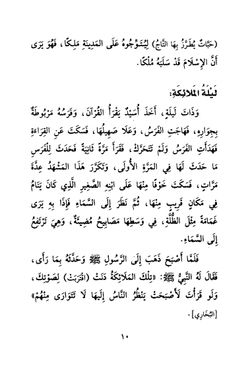 (حَبَّاتٌ يُطَرَّزُ بِهَا التَّاجُ) لِيُتَوِّجُوهُ عَلَى المَدِينَةِ مَلِكًا، فَهُوَ يَرَى
أَنَّ الإِسْلَامَ قَدْ سَلَبَهُ مُلْكًا.
لَيْلَةُ المَلَائِكَةِ:
وَذَاتَ لَيْلَةٍ، أَخَذَ أُسَيْدٌ يَقْرَأُ القُرْآنَ، وَفَرَسُهُ مَرْبُوطَةٌ
بِجِوَارِهِ، فَهَاجَتِ الفَرَسُ، وَعَلَا صَهِيلُهَا، فَسَكَتَ عَنِ القِرَاءَةِ
فَهَدَأَتِ الفَرَسُ وَلَمْ تَتَحَرَّكْ، فَقَرَأَ مَرَّةً ثَانِيَةً فَحَدَثَ لِلْفَرَسِ
مَا حَدَثَ لَهَا فِي المَرَّةِ الأُولَى، وَتَكَرَّرَ هَذَا المَشْهَدُ عِدَّةَ
مَرَّاتٍ، فَسَكَتَ خَوْفًا مِنْهَا عَلَى ابْنِهِ الصَّغِيرِ الَّذِي كَانَ يَنَامُ
فِي مَكَانٍ قَرِيبٍ مِنْهَا، ثُمَّ نَظَرَ إِلَى السَّمَاءِ فَإِذَا بِهِ يَرَى
غَمَامَةً مِثْلَ الظُّلَّةِ، فِي وَسَطِهَا مَصَابِيحُ مُضِيئَةٌ، وَهِيَ تَرْتَفِعُ
إِلَى السَّمَاءِ.
فَلَمَّا أَصْبَحَ ذَهَبَ إِلَى الرَّسُولِ ﷺ وَحَدَّثَهُ بِمَا رَأَى،
فَقَالَ لَهُ النَّبِيُّ ﷺ: «تِلْكَ المَلَائِكَةُ دَنَتْ (اقْتَرَبَتْ) لِصَوْتِكَ،
وَلَوْ قَرَأْتَ لَأَصْبَحَتْ يَنْظُرُ النَّاسُ إِلَيْهَا لَا تَتَوَارَى مِنْهُمْ»
[البُخَارِي].
١٠